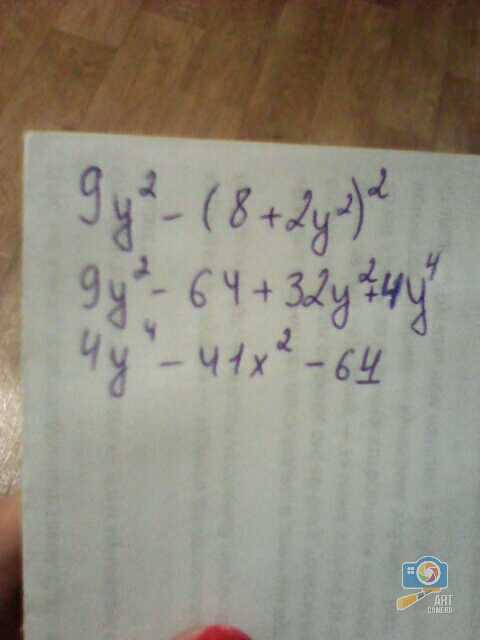 9y² - (8 + 2y²)²
9y² - 64 + 32y² + 4y⁴
4y⁴ - 41x² - 64
ART
CAMERA